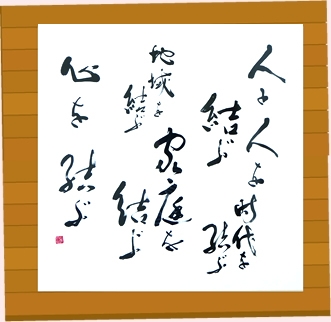 人と人を
結ぶ
時代を
結ぶ
地域を
結ぶ
家庭を
結ぶ
心を
結ぶ